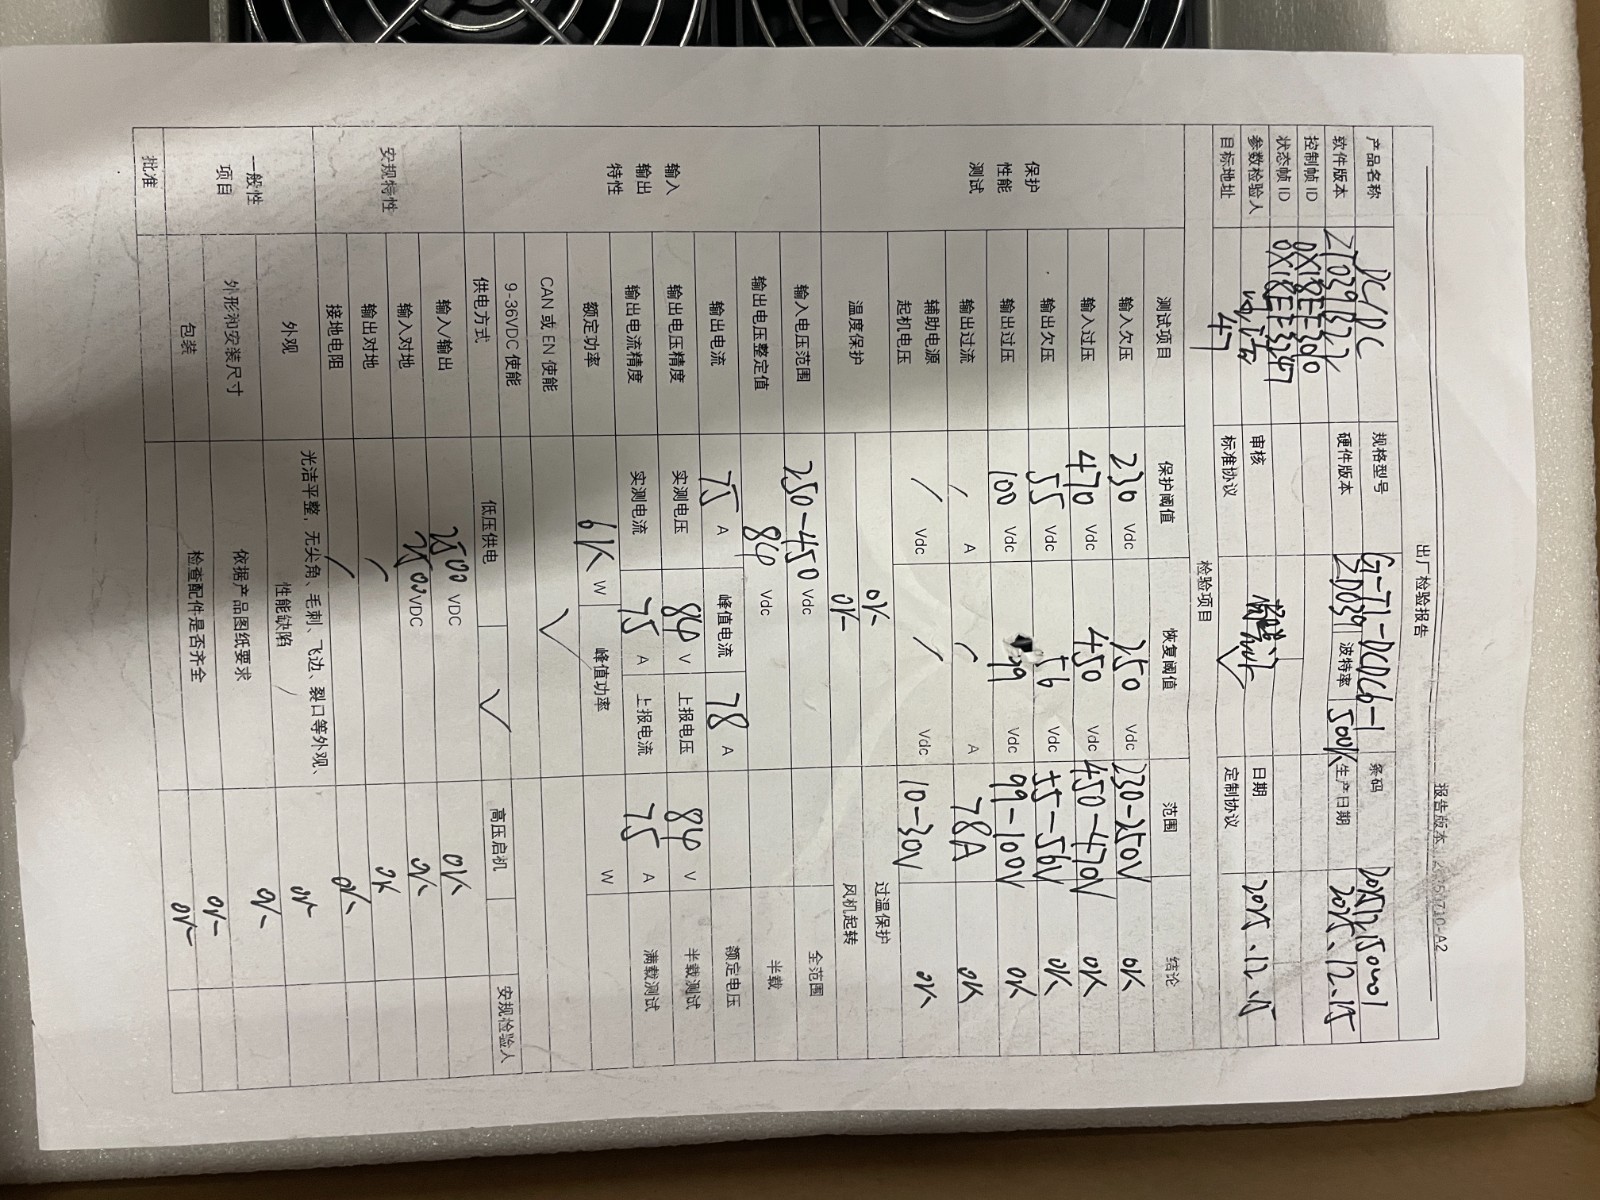 出厂检验报告
产品名称 DC/DC 规格型号 G-T1-DCDC6-1 条码
软件版本 硬件版本 ZD039 波特率 500K 生产日期 2025.12.15
控制帧 ID 0X18EE3900
状态帧 ID
参数检验人 审核 日期 2025.12.15
目标地址 标准协议 定制协议
检验项目
测试项目 保护阈值 恢复阈值 范围 结论
保护性能测试
输入欠压 230 Vdc 250 Vdc 230-250V OK
输入过压 470 Vdc 450 Vdc 450-470V OK
输出欠压 55 Vdc 56 Vdc 55-56V OK
输出过压 100 Vdc 99 Vdc 99-100V OK
输出过流 / A / A 78A OK
辅助电源起机电压 / Vdc / Vdc 10-30V OK
温度保护 OK 过温保护
OK 风机起转
输入输出特性
输入电压范围 250-450 Vdc 全范围
输出电压整定值 84 Vdc 半载
输出电流 75 A 峰值电流 78 A 额定电压
输出电压精度 实测电压 84 V 上报电压 84 V 半载测试
输出电流精度 实测电流 75 A 上报电流 75 A 满载测试
额定功率 6K W 峰值功率 W
CAN 或 EN 使能 ✓
9-36VDC 使能
供电方式 低压供电 ✓ 高压启机 安规检验人
安规特性
输入/输出 2500 VDC OK
输入对地 2500 VDC OK
输出对地 / OK
接地电阻 / OK
一般性项目
外观 光洁平整，无尖角、毛刺、飞边、裂口等外观、性能缺陷 OK
外形和安装尺寸 依据产品图纸要求 OK
包装 检查配件是否齐全 OK
批准